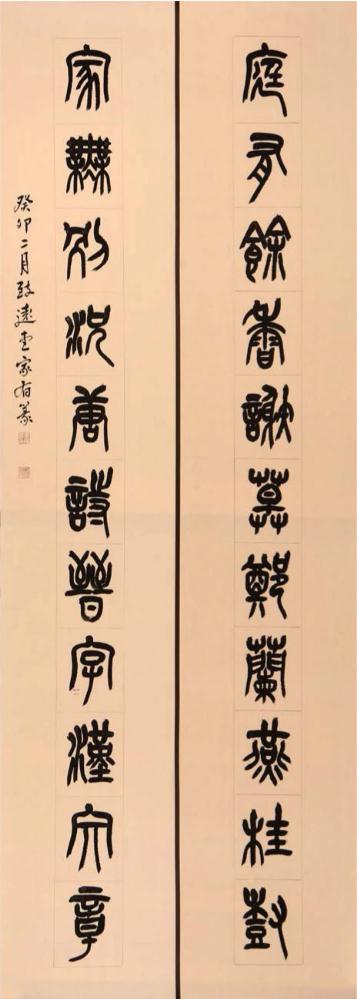 庭有餘香謝草鄭蘭燕桂尌
家無別況唐詩晉字漢文章
癸卯二月致遠堂家有篆